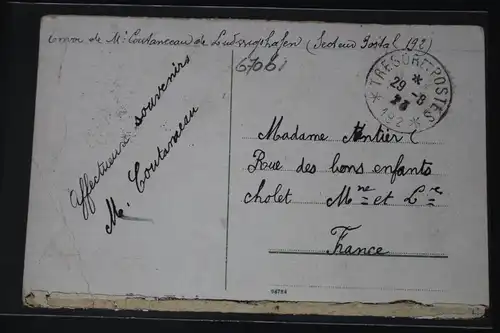 Envoi de Mr Coutanceau de Ludwigshafen (Secteur Postal 192)
67061
* TRESOR ET POSTES *
29 - 8
23
192
Affectueux souvenirs
Me Coutanceau
Madame
Rue des bons enfants
Cholet Mne et Lre
France